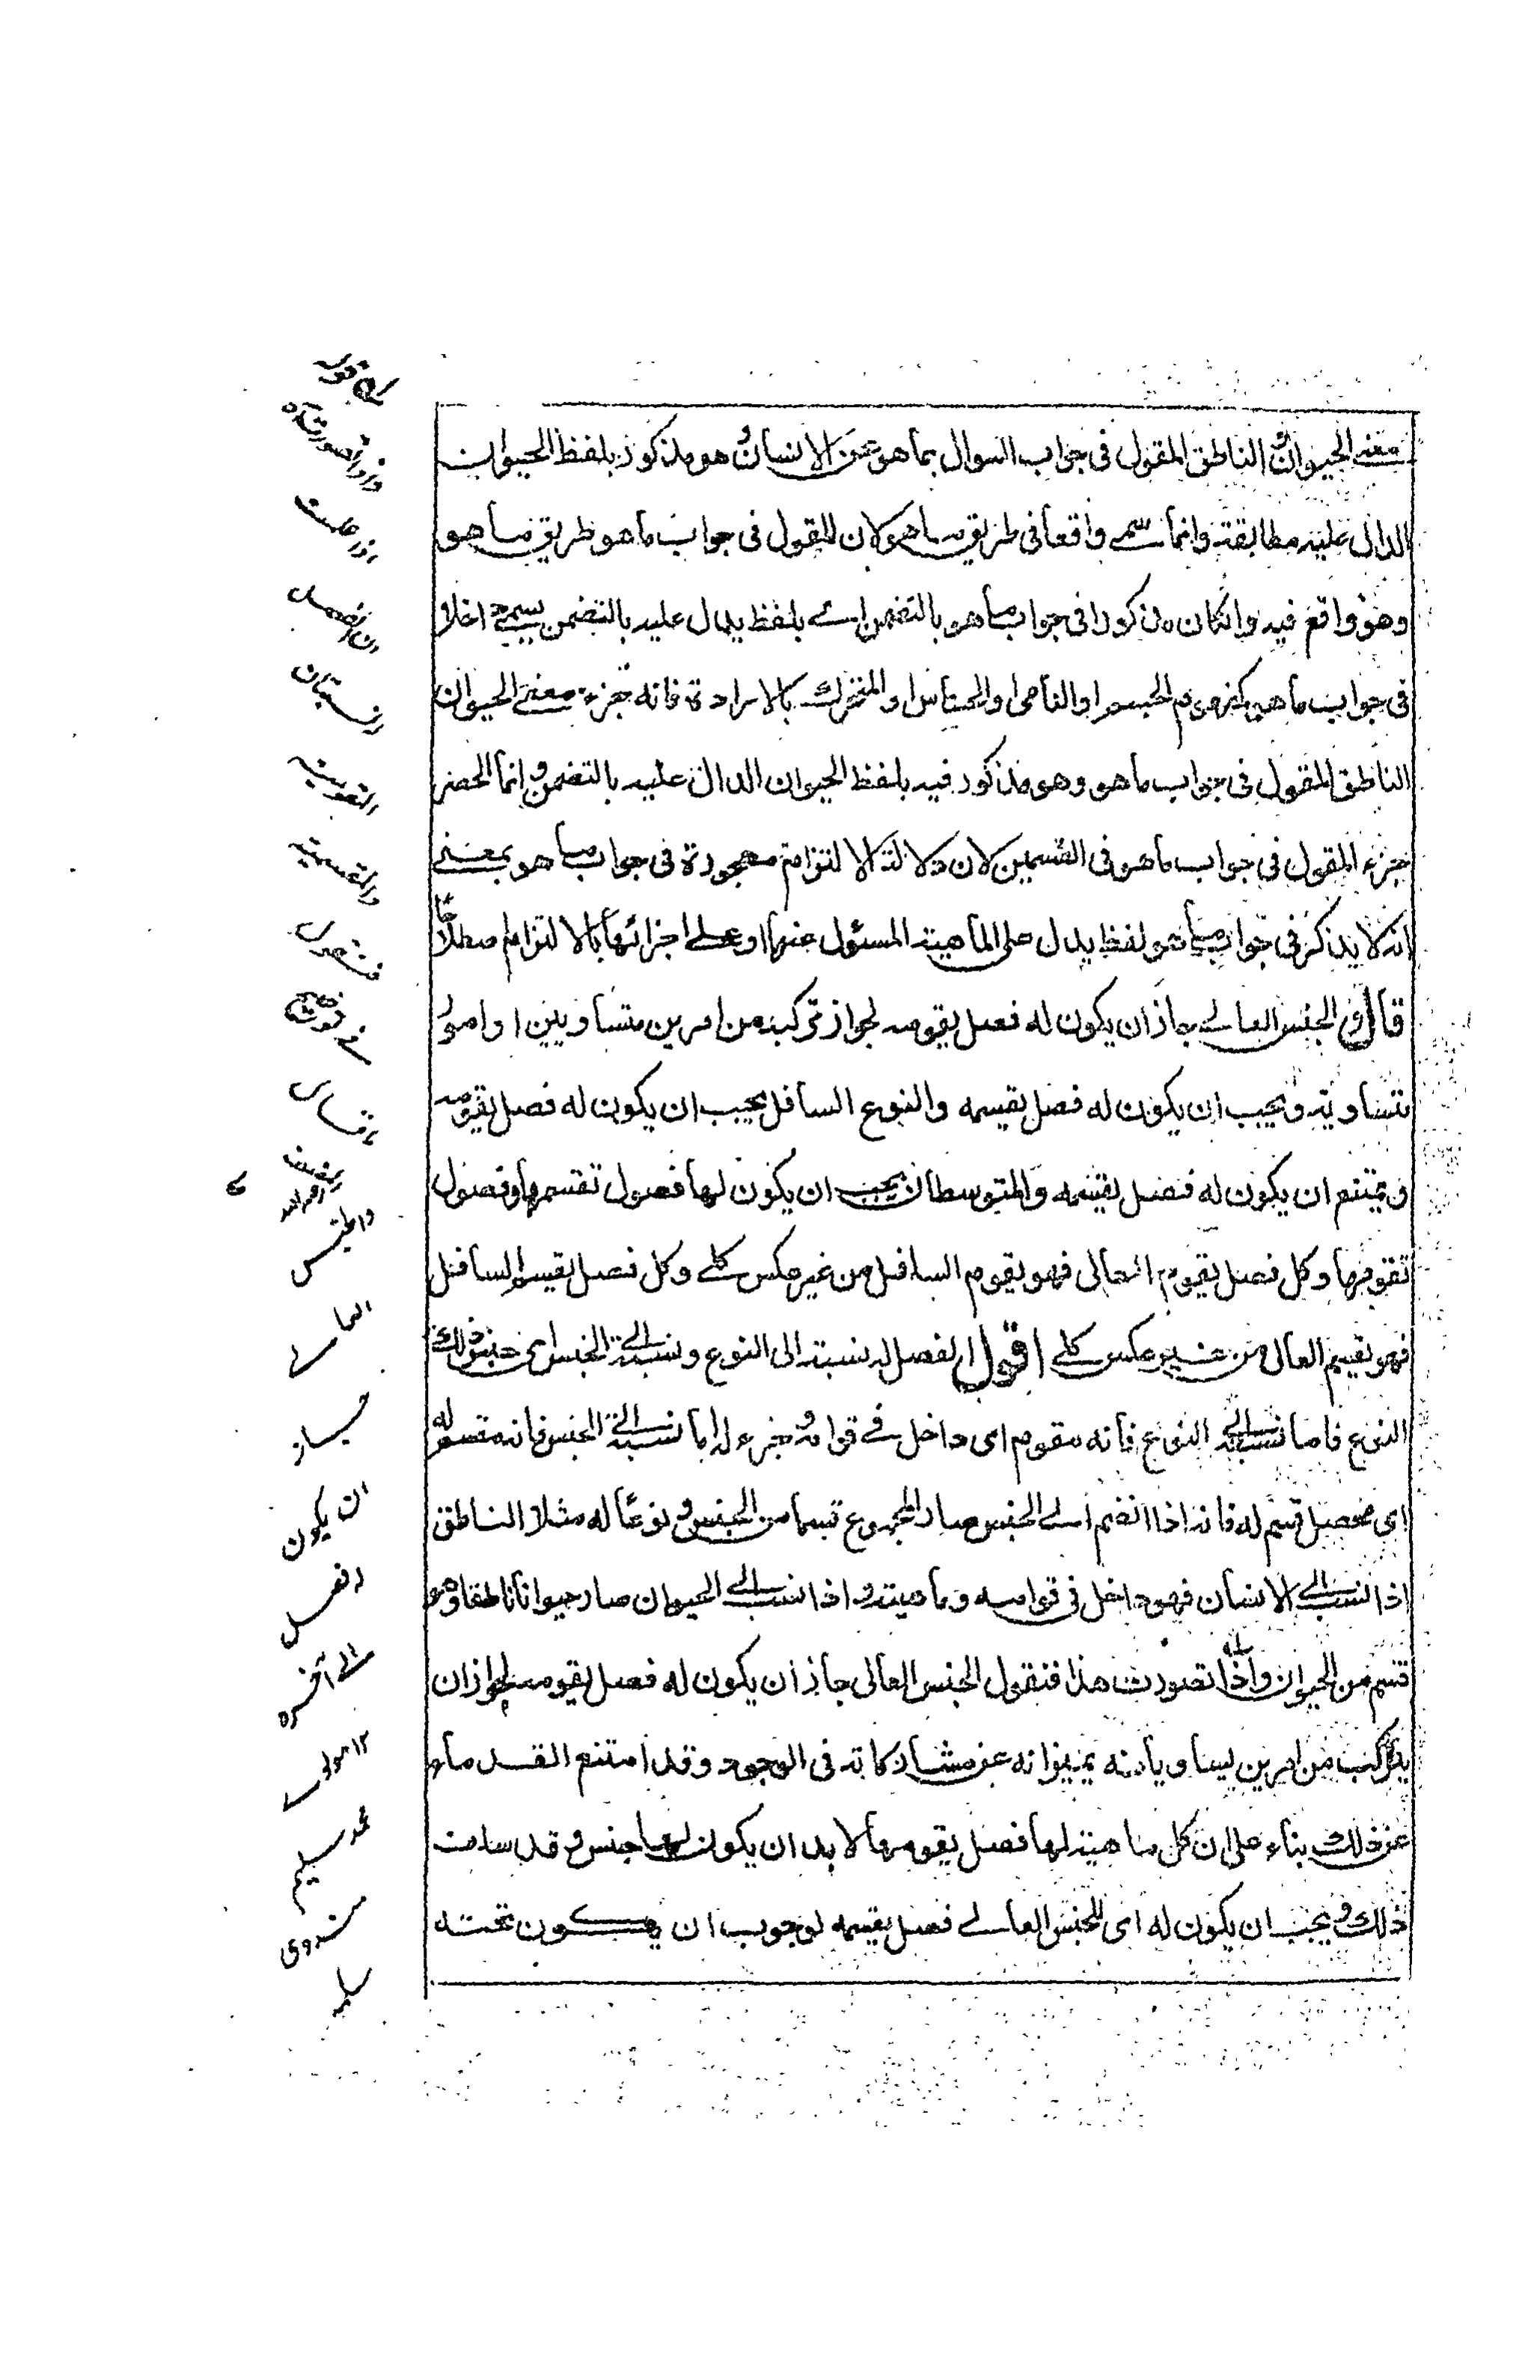 معنى الحيوان الناطق المقول فى جواب السوال بما هو عن الانسان وهو مذكور بلفظ الحيوان
الدال عليه مطابقة وانما سمى واقعا فى طريق ما هو لان المقول فى جواب ما هو طريق ما هو
وهو واقع فيه وانكان مذكورا فى جواب ما هو بالتضمن اى بلفظ يدل عليه بالتضمن يسمى داخلا
فى جواب ما هو كمفهوم الجسم او النامى او الحساس او المتحرك بالارادة فانه جزء معنى الحيوان
الناطق المقول فى جواب ما هو وهو مذكور فيه بلفظ الحيوان الدال عليه بالتضمن وانما انحصر
جزء المقول فى جواب ما هو فى القسمين لان دلالة الالتزام مهجورة فى جواب ما هو بمعنى
انه لا يذكر فى جواب ما هو لفظ يدل على الماهية المسئول عنها او على اجزائها بالالتزام اصطلاحا
قال والجنس العالى جاز ان يكون له فصل يقومه لجواز تركبه من امرين متساويين او امور
متساوية ويجب ان يكون له فصل يقسمه والنوع السافل يجب ان يكون له فصل يقومه
ويمتنع ان يكون له فصل يقسمه والمتوسطات يجب ان يكون لها فصول تقسمها وفصول
تقومها وكل فصل يقوم العالى فهو يقوم السافل من غير عكس كلى وكل فصل يقسم السافل
فهو يقسم العالى من غير عكس كلى اقول الفصل له نسبة الى النوع ونسبة الى الجنس اى جنس ذلك
النوع فاما نسبته الى النوع فانه مقوم اى داخل فى قوامه وجزء له واما نسبته الى الجنس فانه مقسم له
اى محصل قسم له فانه اذا انضم الى الجنس صار المجموع قسما من الجنس ونوعا له مثلا الناطق
اذا نسب الى الانسان فهو داخل فى قوامه وماهيته واذا نسب الى الحيوان صار حيوانا ناطقا وهو
قسم من الحيوان واذا تصورت هذا فنقول الجنس العالى جاز ان يكون له فصل يقومه لجواز ان
يتركب من امرين يساويانه يميزانه عن مشاركاته فى الوجود وقد امتنع القدماء
عن ذلك بناء على ان كل ماهية لها فصل يقومها لا بد ان يكون لها جنس وقد سلف
ذلك ويجب ان يكون له اى للجنس العالى فصل يقسمه لوجوب ان يكون تحته
له قوله
واذا تصورت آه
التعريف
والتقسيم
والجنس
العالى
جاز
ان يكون
له فصل
الى آخره
١٢ مولوى
محمد سليم
سلمه